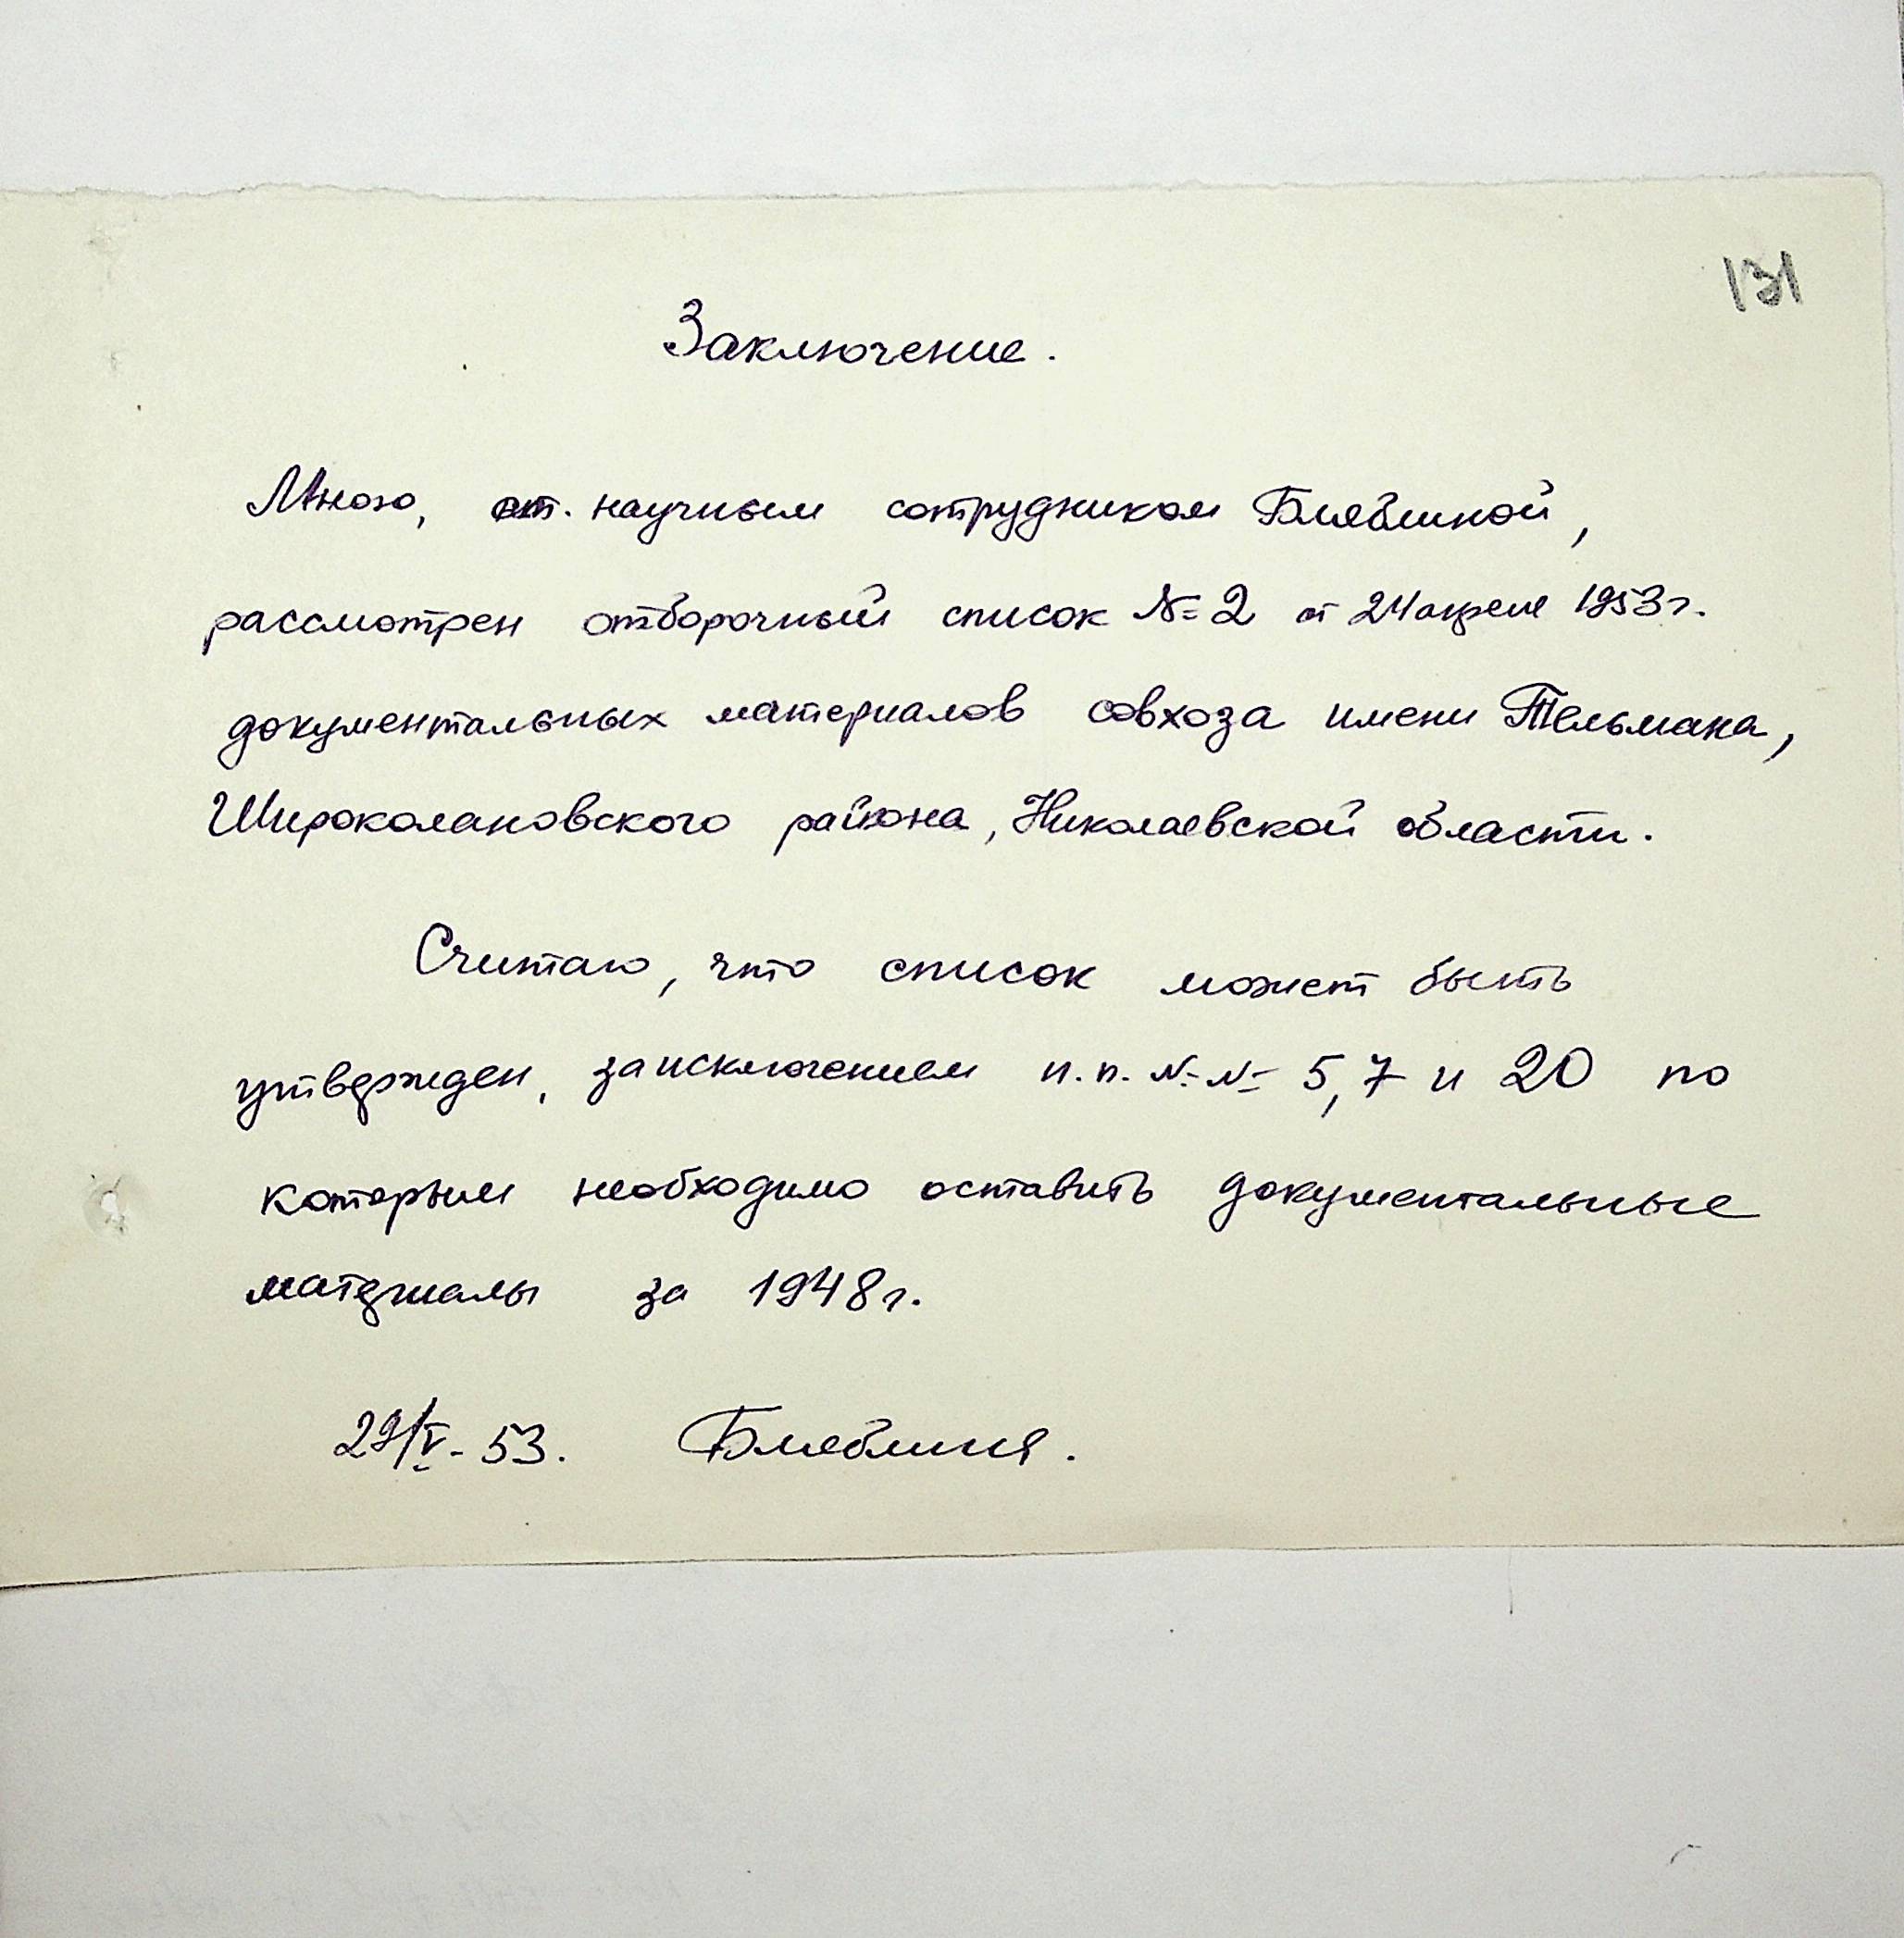 131
Заключение.
Мною, ст. научным сотрудником
рассмотрен отборочный список № 2 от 24 апреля 1953 г.
документальных материалов совхоза имени Тельмана,
Широколановского района, Николаевской области.
Считаю, что список может быть
утвержден, за исключением п.п. №№ 5, 7 и 20 по
которым необходимо оставить документальные
материалы за 1948 г.
29/V - 53.